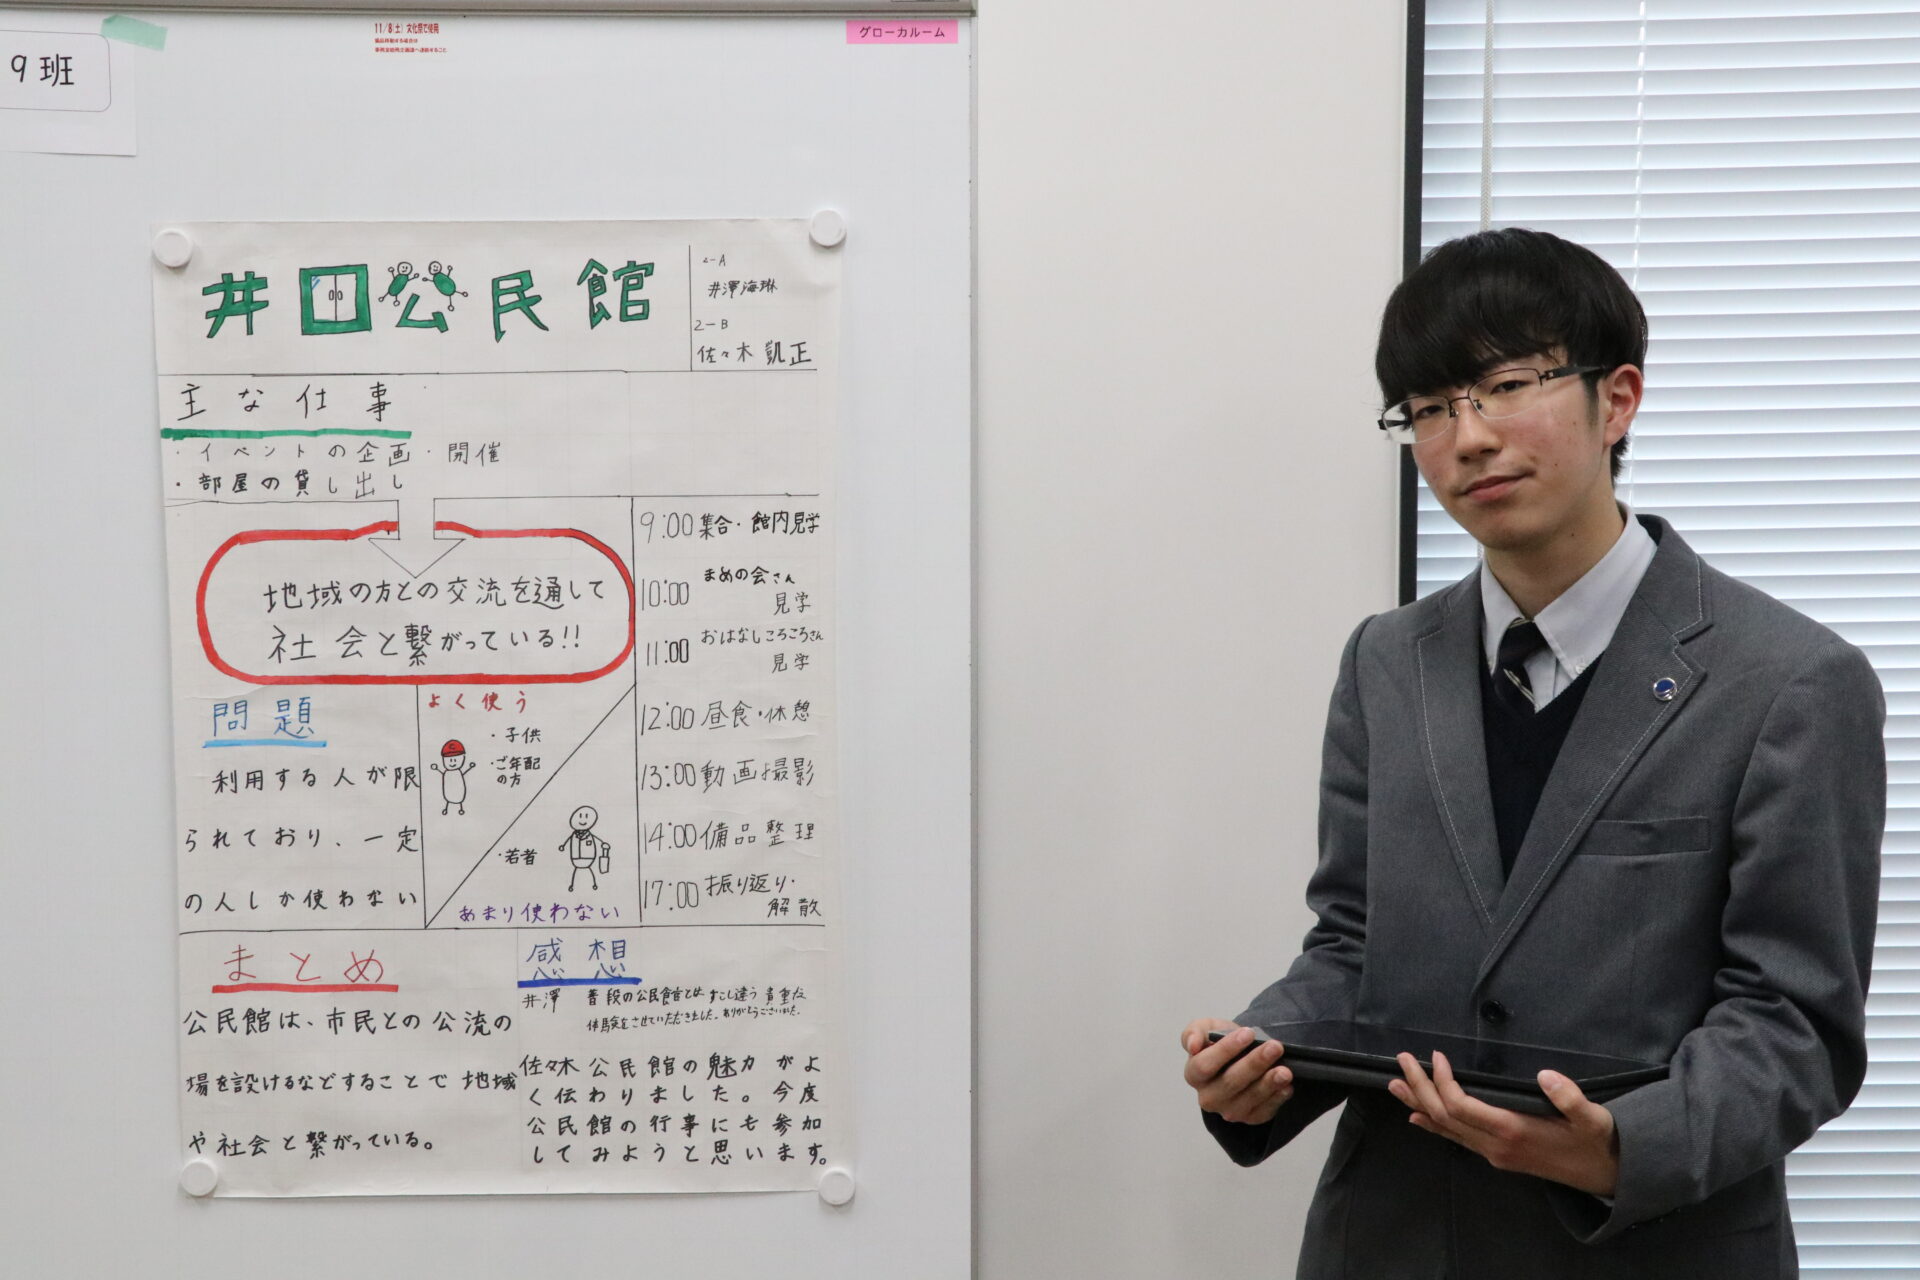 9班
11/8(土) 文化祭で使用
グローカルルーム
井口公民館
2-A
井澤海琳
2-B
佐々木 凱正
主な仕事
・イベントの企画・開催
・部屋の貸し出し
地域の方との交流を通して
社会と繋がっている!!
9:00 集合・館内見学
10:00 まめの会さん
見学
11:00 おはなしころころさん
見学
12:00 昼食・休憩
13:00 動画撮影
14:00 備品整理
17:00 振り返り・
解散
問題
利用する人が限
られており、一定
の人しか使わない
よく使う
・子供
・ご年配
の方
・若者
あまり使わない
まとめ
公民館は、市民との公流の
場を設けるなどすることで地域
や社会と繋がっている。
感想
井澤 普段の公民館とはすこし違う貴重な
体験をさせていただきました。ありがとうございました。
佐々木 公民館の魅力がよ
く伝わりました。今度
公民館の行事にも参加
してみようと思います。